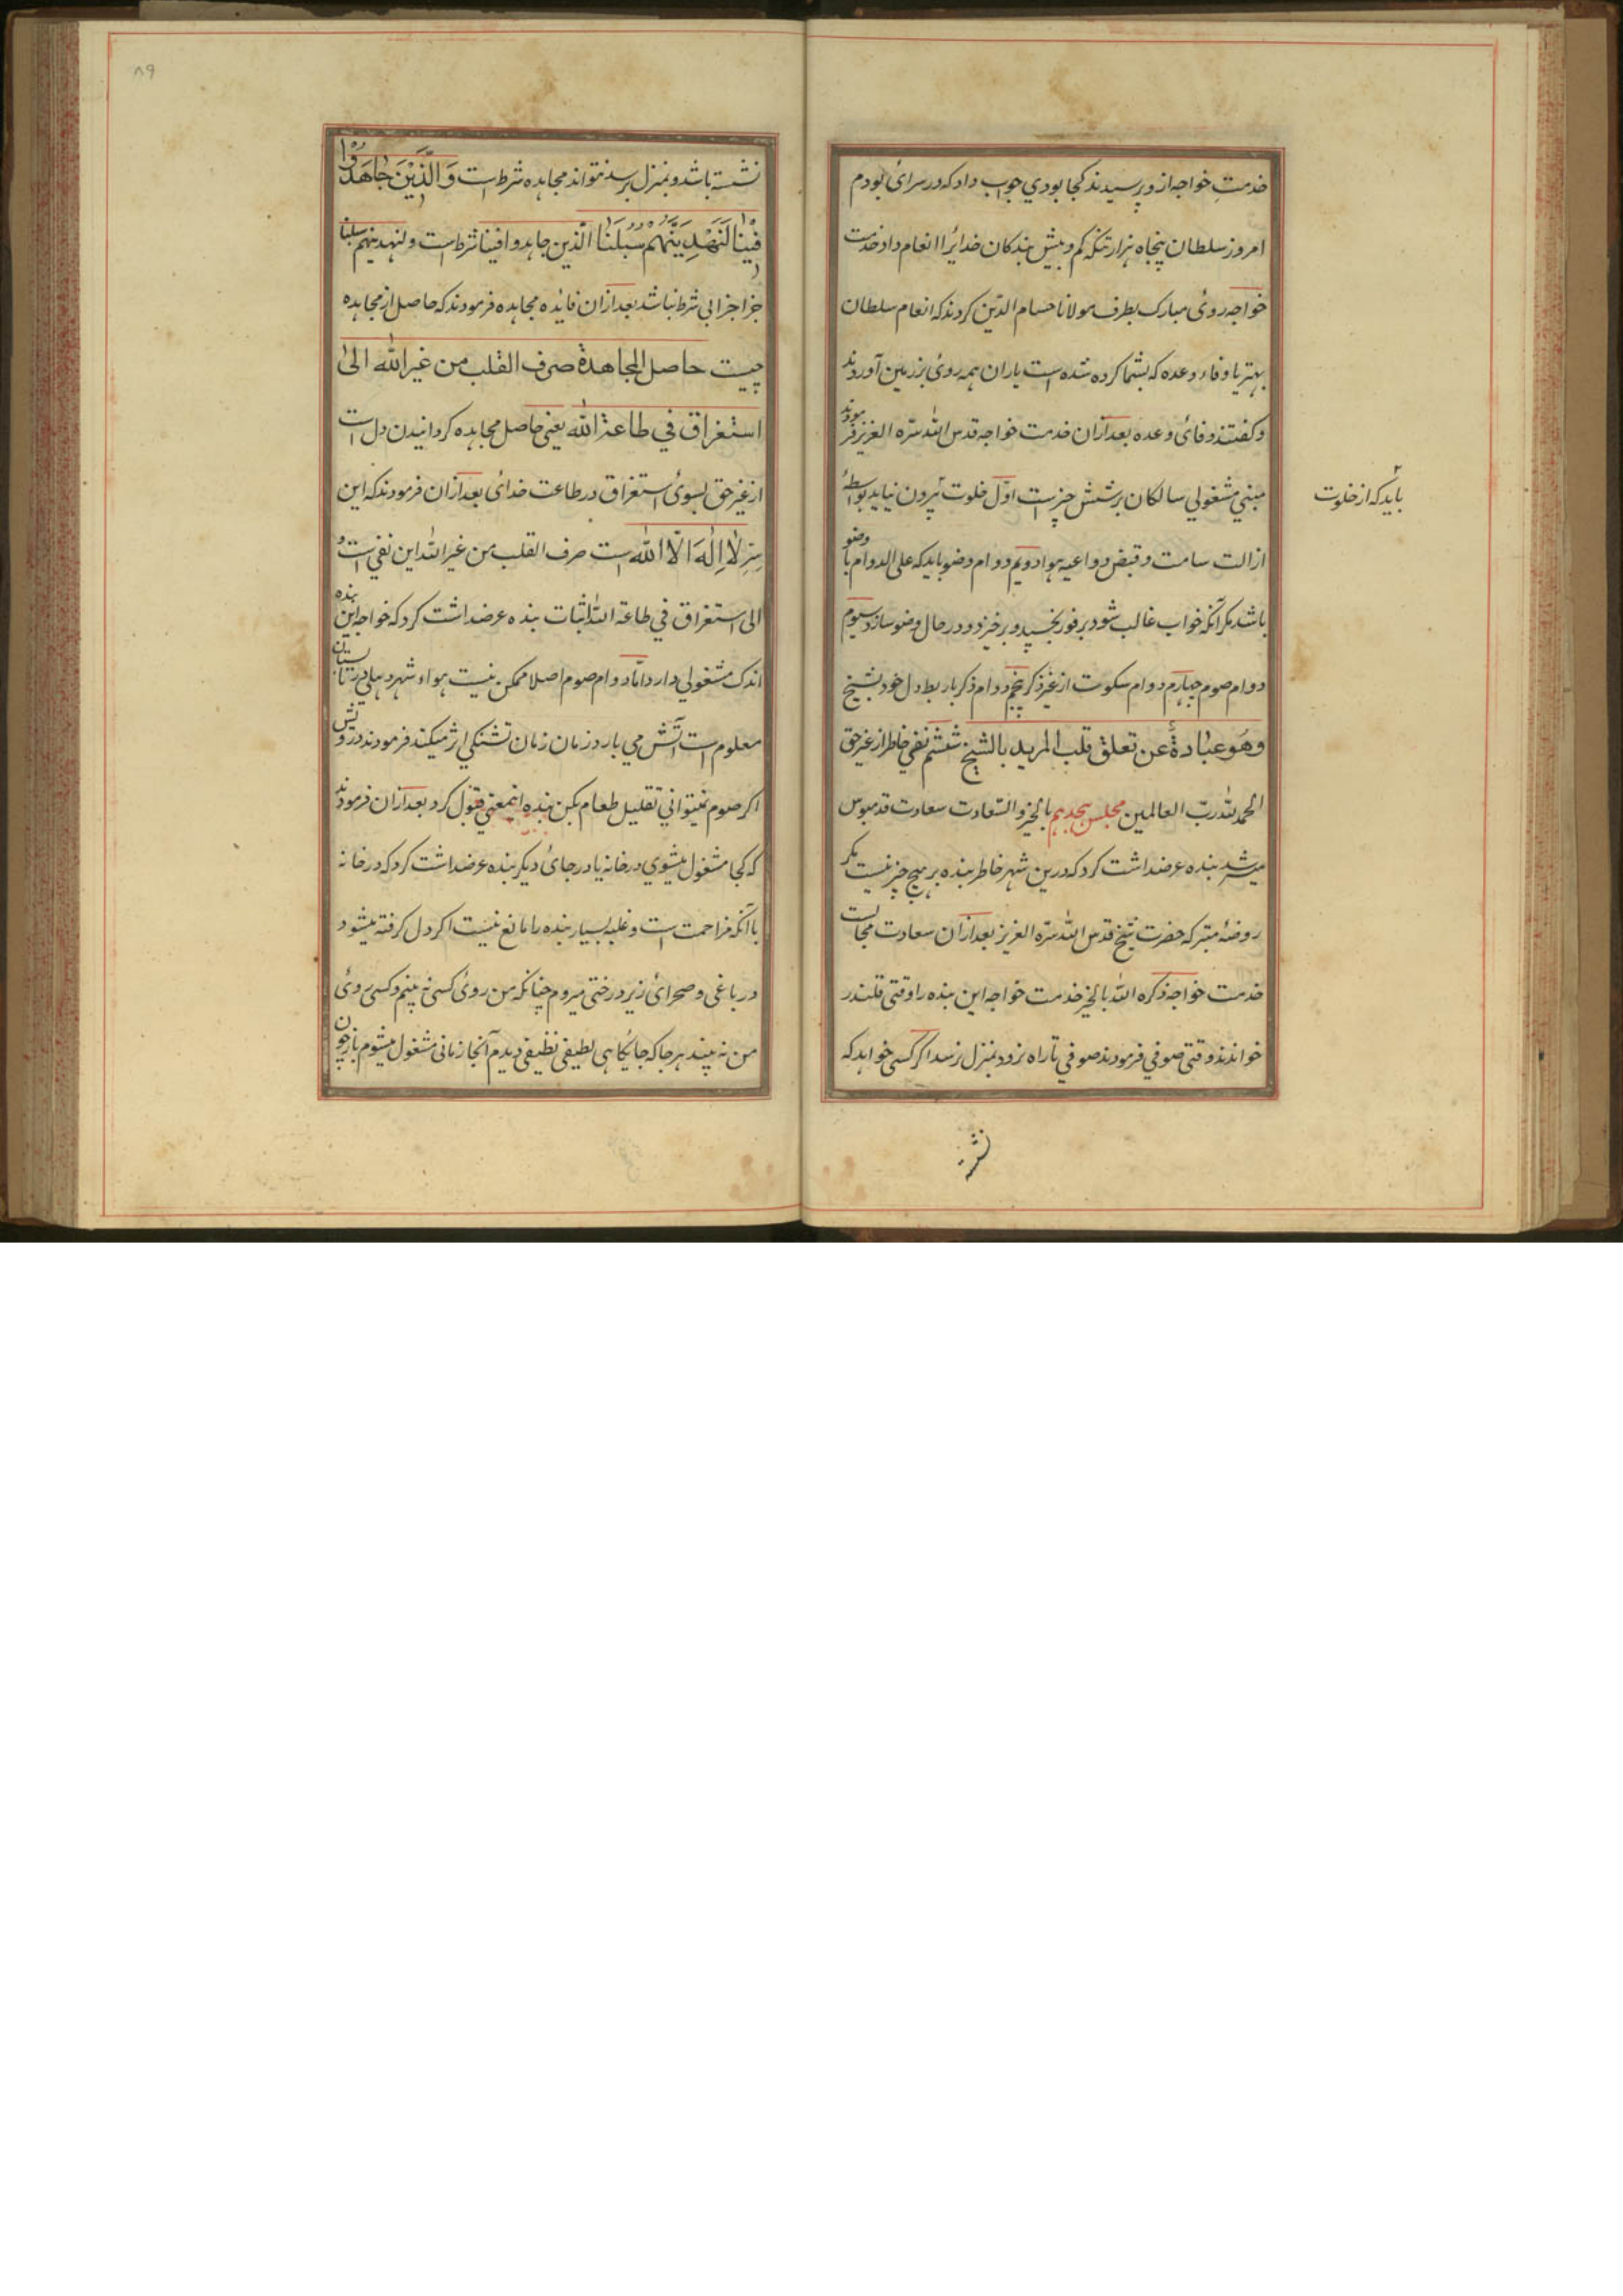 خدمتِ خواجه ازو پرسیدند کجا بودي جواب داد که در سرای بودم
امروز سلطان پنجاه هزار تنکه کم و بیش بندکان خدایرا انعام داد خدمت
خواجه روی مبارک بطرف مولانا حسام الدّین کردند که انعام سلطان
بهتر یا وفاء وعده که بشما کرده شده است یاران همه روی بر زمین آوردند
و کفتند وفائ وعده بعد ازان خدمت خواجه قدس الله سرّه العزیز فرمودند
مبني مشغولي سالکان بر شش چیز است اوّل خلوت بیرون نیاید بواسطهٔ
باید که از خلوت
ازالت سامت و قبض و داعیه هوا دویم دوام وضو باید که علی الدوام با وضو
باشد مکر آنکه خواب غالب شود بر فور بخسپد و برخیزد و در حال وضو سازد سیوم
دوام صوم چهارم دوام سکوت از غیر ذکر پنجم دوام ذکر با ربط دل خود بشیخ
وهو عبادةٔ عن تعلق قلب المرید بالشیخ ششم نفي خاطر از غیر حق
الحمد لله ربّ العالمین مجلس هجدهم بالخیر والسّعادت سعادت قدمبوس
میسّر شد بنده عرضداشت کرد که درین شهر خاطر بنده بر هیچ چیز نیست مکر
روضهٔ متبرکه حضرت شیخ قدس الله سرّه العزیز بعد ازان سعادت مجالست
خدمت خواجه ذکره الله بالخیر خدمت خواجه این بنده را وقتی قلندر
خواندند وقتی صوفي فرمودند صوفي تا راه نرود بمنزل نرسد اکر کسی خواهد که
نشسته
نشسته باشد و بمنزل برسد نتواند مجاهده شرط است وَالَّذِیْنَ جَاهَدُوْا
فِیْنَا لَنَهْدِیَنَّهُمْ سُبُلَنَا الّذین جاهدوا فینا شرط است ولنهدینهم سبلنا
جزا جزا بی شرط نباشد بعد ازان فایده مجاهده فرمودند که حاصل از مجاهده
چیست حاصل المجاهدة صرف القلب من غیر الله الی
استغراق في طاعة الله یعنی حاصل مجاهده کردانیدن دل است
از غیر حق بسوی استغراق در طاعت خدای بعد ازان فرمودند که این
سِرِّ لَا اِلٰهَ اِلّا الله است صرف القلب من غیر الله این نفي است و
الی استغراق في طاعة الله اثبات بنده عرضداشت کرد که خواجه این بنده
اندک مشغولي دارد امّا دوام صوم اصلا ممکن نیست هواء شهر دهلی در تابستان
معلوم است آتش مي بارد زمان زمان تشنکي اثر میکند فرمودند درویش
اکر صوم نمیتوانی تقلیل طعام بکن بنده اینمعنی قبول کرد بعد ازان فرمودند
که کجا مشغول میشوي در خانه یا در جای دیکر بنده عرضداشت کرد که در خانه
با آنکه مزاحمت است و غلبه بسیار بنده را مانع نیست اکر دل کرفته میشود
در باغی و صحرای زیر درختی میروم چنانکه من روی کسی نه بینم و کسی روی
من نه بیند هر جا که جایکاهی لطیفی نظیفی دیدم آنجا زمانی مشغول میشوم باز چون
۸۹